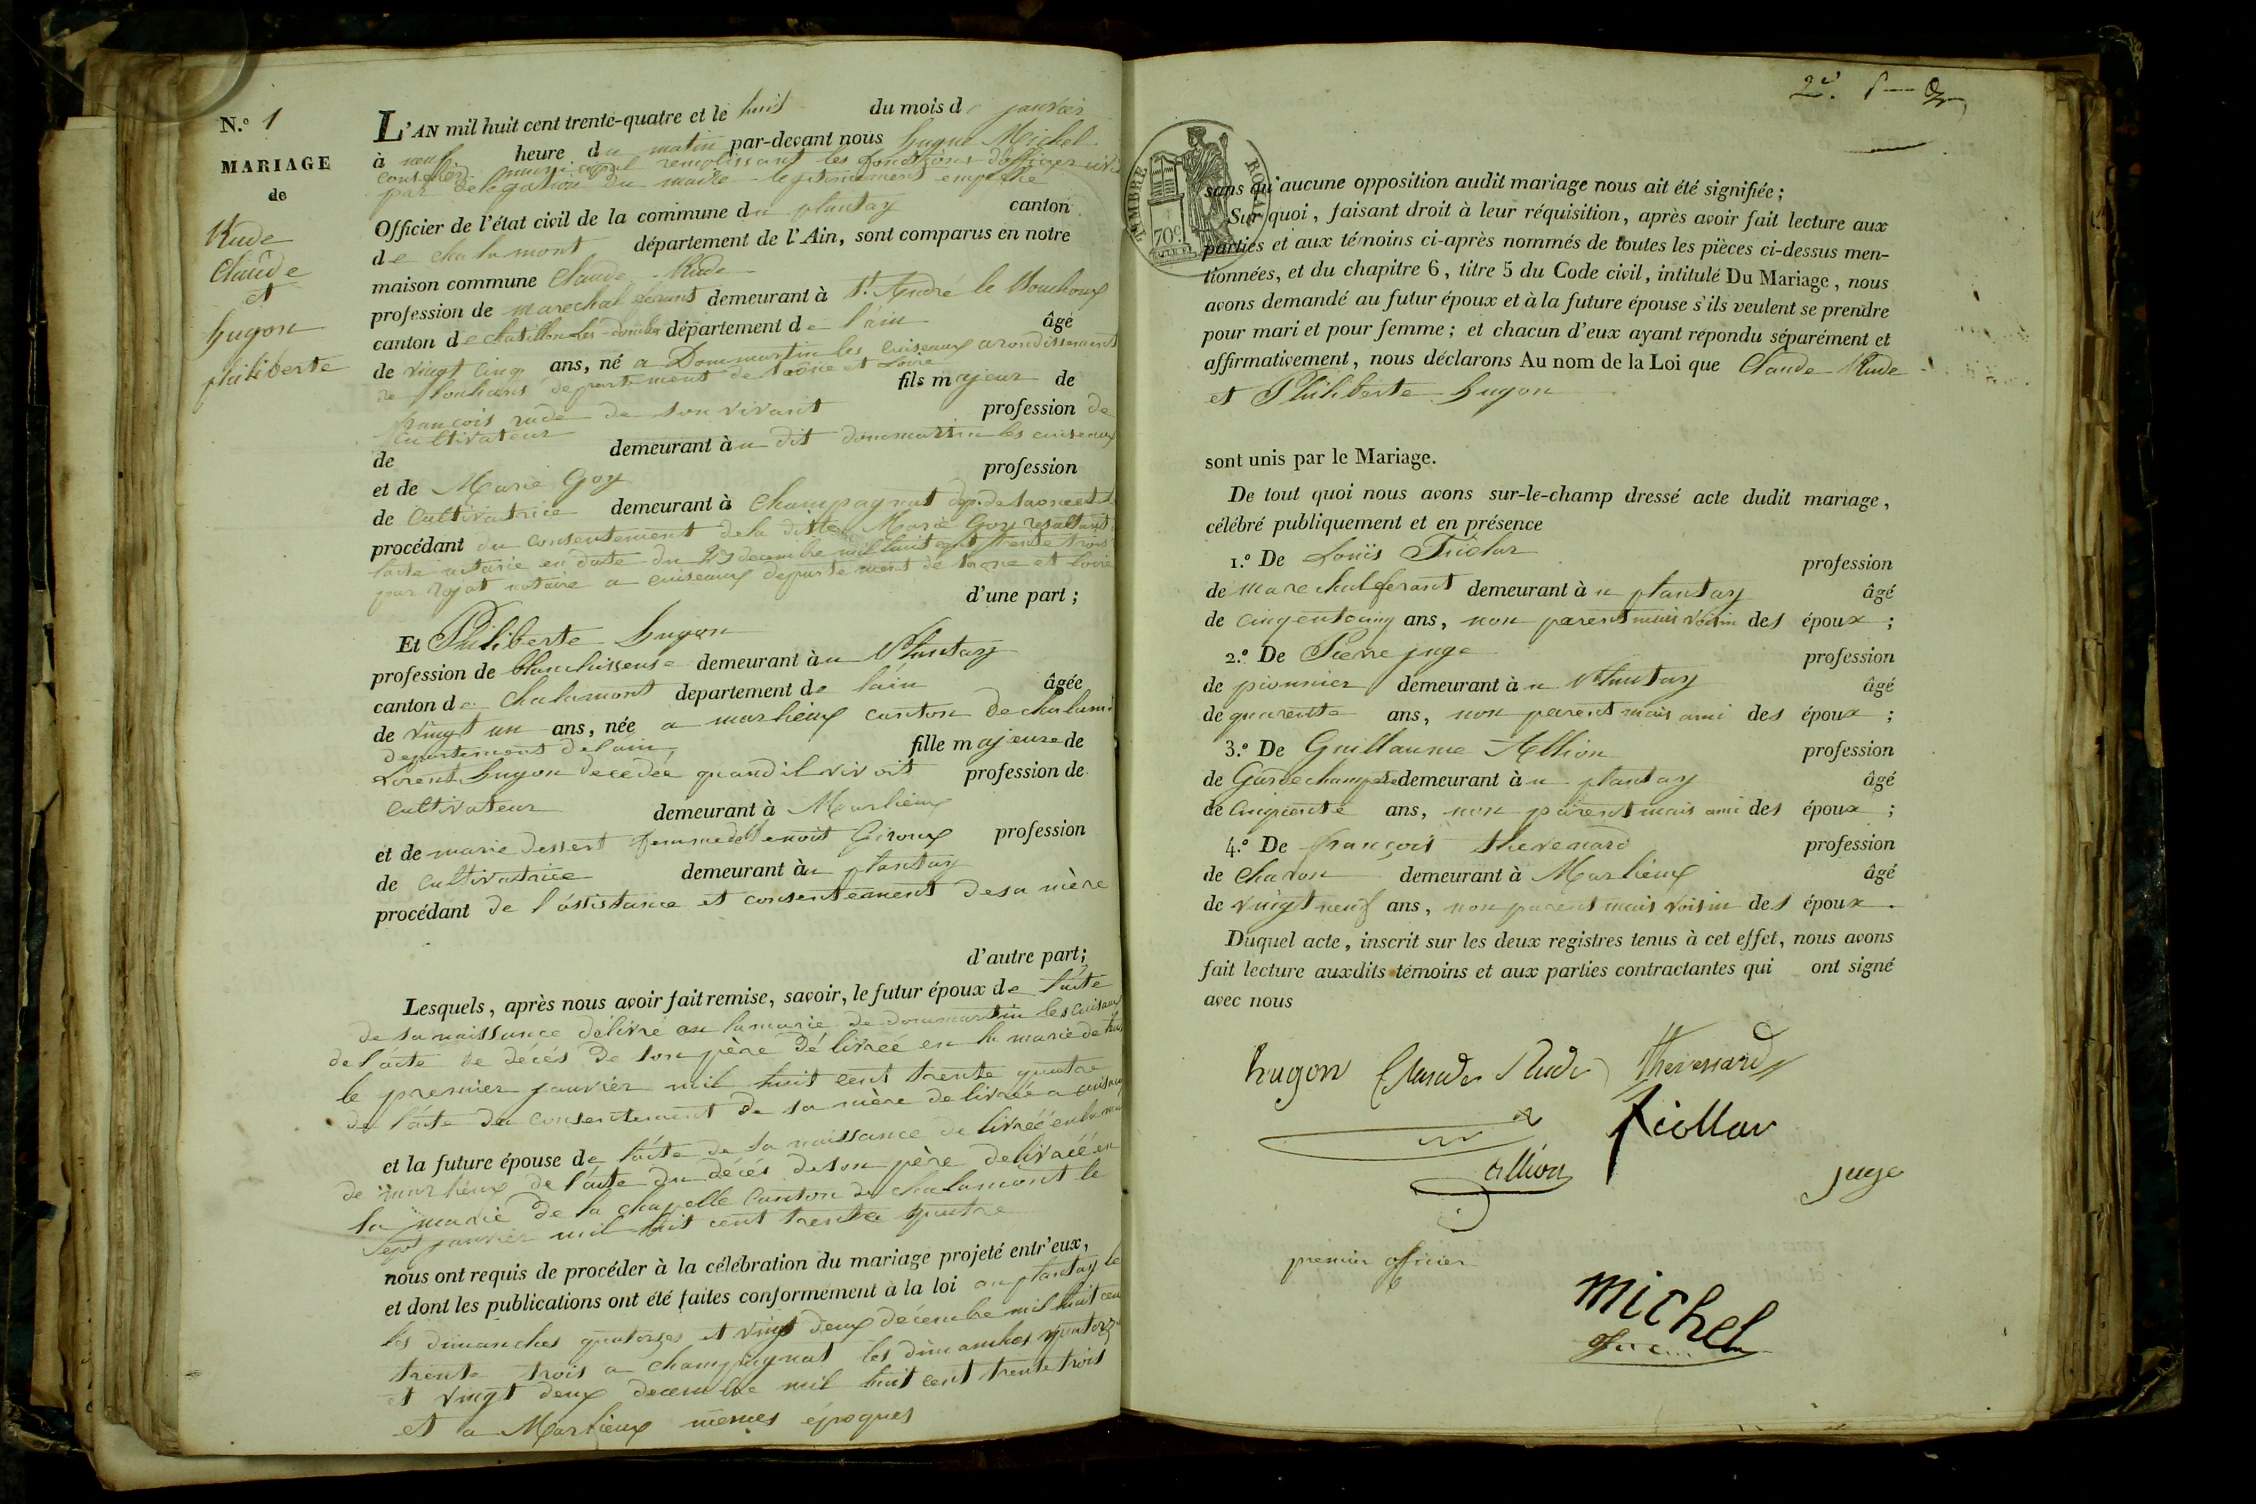 N.º 1
MARIAGE
de
Rude
Claude
et
hugon
philiberte
L'AN mil huit cent trente-quatre et le huit du mois de janvier
à neuf heure du matin par-devant nous hugue Michel
conseiller municipal remplissant les fonctions d'officier civil
par delegation du maire legitimement empeché
Officier de l'état civil de la commune du plantay canton
de chalamont département de l'Ain, sont comparus en notre
maison commune Claude Rude
profession de marechal ferant demeurant à St. André le Bouchoux
canton de chatillon les dombes département de l'ain âgé
de vingt cinq ans, né a Dommartin les cuiseaux arondissement
de louhans departement de saône et Loire fils majeur de
françois rude de son vivant profession de
cultivateur
de demeurant àu dit dommartin les cuiseaux
et de Marie Goy profession
de Cultivatrice demeurant à Champagnat dep. de saone et
procédant du consentement de la dite Marie Goy resultant
l'acte notarié en date du 27 decembre mil huit cent trente trois
par rojat notaire a cuiseaux departement de saone et loire
d'une part ;
Et Philiberte hugon
profession de blanchisseuse demeurant àu Plantay
canton de Chalamont departement de l'ain âgée
de vingt un ans, née a marlieux canton de chalamont
departement de lain, fille majeure de
Lorent hugon decedée quand il vivoit profession de
cultivateur demeurant à Marlieux
et de marie dessert femme de Benoit Giroux profession
de cultivatrice demeurant àu plantay
procédant de l'assistance et consentement de sa mère
d'autre part;
Lesquels, après nous avoir fait remise, savoir, le futur époux de l'acte
de sa naissance délivré au la marie de dommartin les cuiseaux
de l'acte de décés de son père délivrée en la marie de
le premier janvier mil huit cent trente quatre
de l'acte du consentement de sa mère delivrée a cuiseaux
et la future épouse de l'acte de sa naissance delivréé en la
de marlieux de l'acte du décés de son père delivréé en
la marie de la chapelle canton de chalamont le
sept janvier mil huit cent trente quatre
nous ont requis de procéder à la célébration du mariage projeté entr'eux,
et dont les publications ont été faites conformément à la loi au plantay le
les dimanches quatorzes et vingt deux décembre mil huit cent
trente trois a champagnat les dimanches quatorze
et vingt deux decembre mil huit cent trente trois
et a Marlieux memes époques
2e.
TIMBRE ROYAL
70 c.
sans qu'aucune opposition audit mariage nous ait été signifiée ;
Sur quoi, faisant droit à leur réquisition, après avoir fait lecture aux
parties et aux témoins ci-après nommés de toutes les pièces ci-dessus men-
tionnées, et du chapitre 6, titre 5 du Code civil, intitulé Du Mariage, nous
avons demandé au futur époux et à la future épouse s'ils veulent se prendre
pour mari et pour femme ; et chacun d'eux ayant répondu séparément et
affirmativement, nous déclarons Au nom de la Loi que Claude Rude
et Philiberte hugon
sont unis par le Mariage.
De tout quoi nous avons sur-le-champ dressé acte dudit mariage,
célébré publiquement et en présence
1.º De Louis profession
de marechal ferant demeurant àu plantay âgé
de cinquentcinq ans, non parent mais voisin des époux ;
2.º De Pierre juge profession
de pionnier demeurant àu Plantay âgé
de quarente ans, non parent mais ami des époux ;
3.º De Guillaume Allion profession
de Garde champetre demeurant àu plantay âgé
de cinquente ans, non parent mais ami des époux ;
4.º De françois thevenard profession
de charon demeurant à Marlieux âgé
de vingt neuf ans, non parent mais voisin des époux.
Duquel acte, inscrit sur les deux registres tenus à cet effet, nous avons
fait lecture auxdits témoins et aux parties contractantes qui ont signé
avec nous
hugon Claude Rude thevenard
fiollar
allion
juge
premier officier
michel